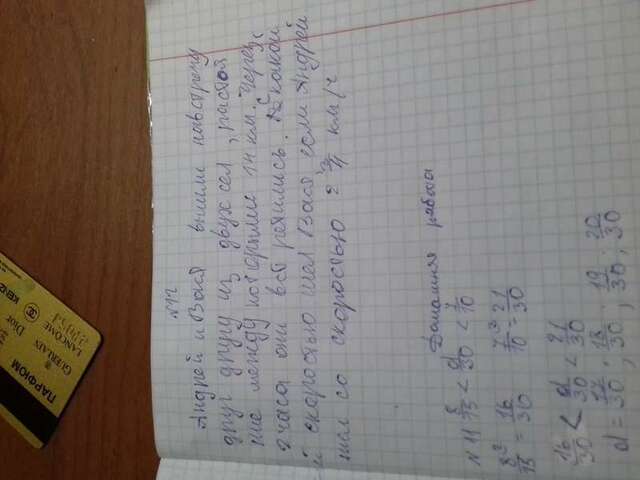 ПАРФЮМ
GUERLAIN
Dior
LANCÔME
KENZ
№12
Андрей и Вася вышли навстречу
друг другу из двух сел, растоя
ние между которыми 14 км. Через
2 часа они встретились. С какой
й скоростью шел Вася если Андрей
шел со скоростью 2 3/4 км/ч
Домашняя работа
№11 8/15 < d/30 < 7/10
8/15 ² = 16/30 7/10 ³ = 21/30
16/30 < d/30 < 21/30
d = 17/30 ; 18/30 ; 19/30 ; 20/30